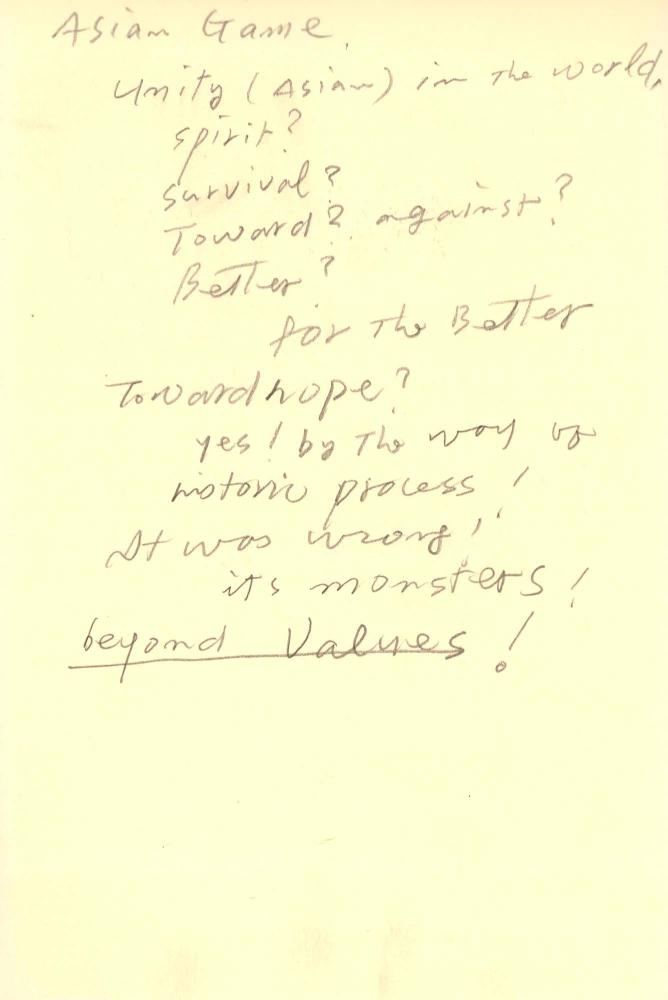 Asian Game
Unity (Asian) in the world,
spirit?
survival?
Toward? against?
Better?
for the Better
Toward hope?
yes! by the way of
process!
It was wrong!
its monsters!
beyond Values!